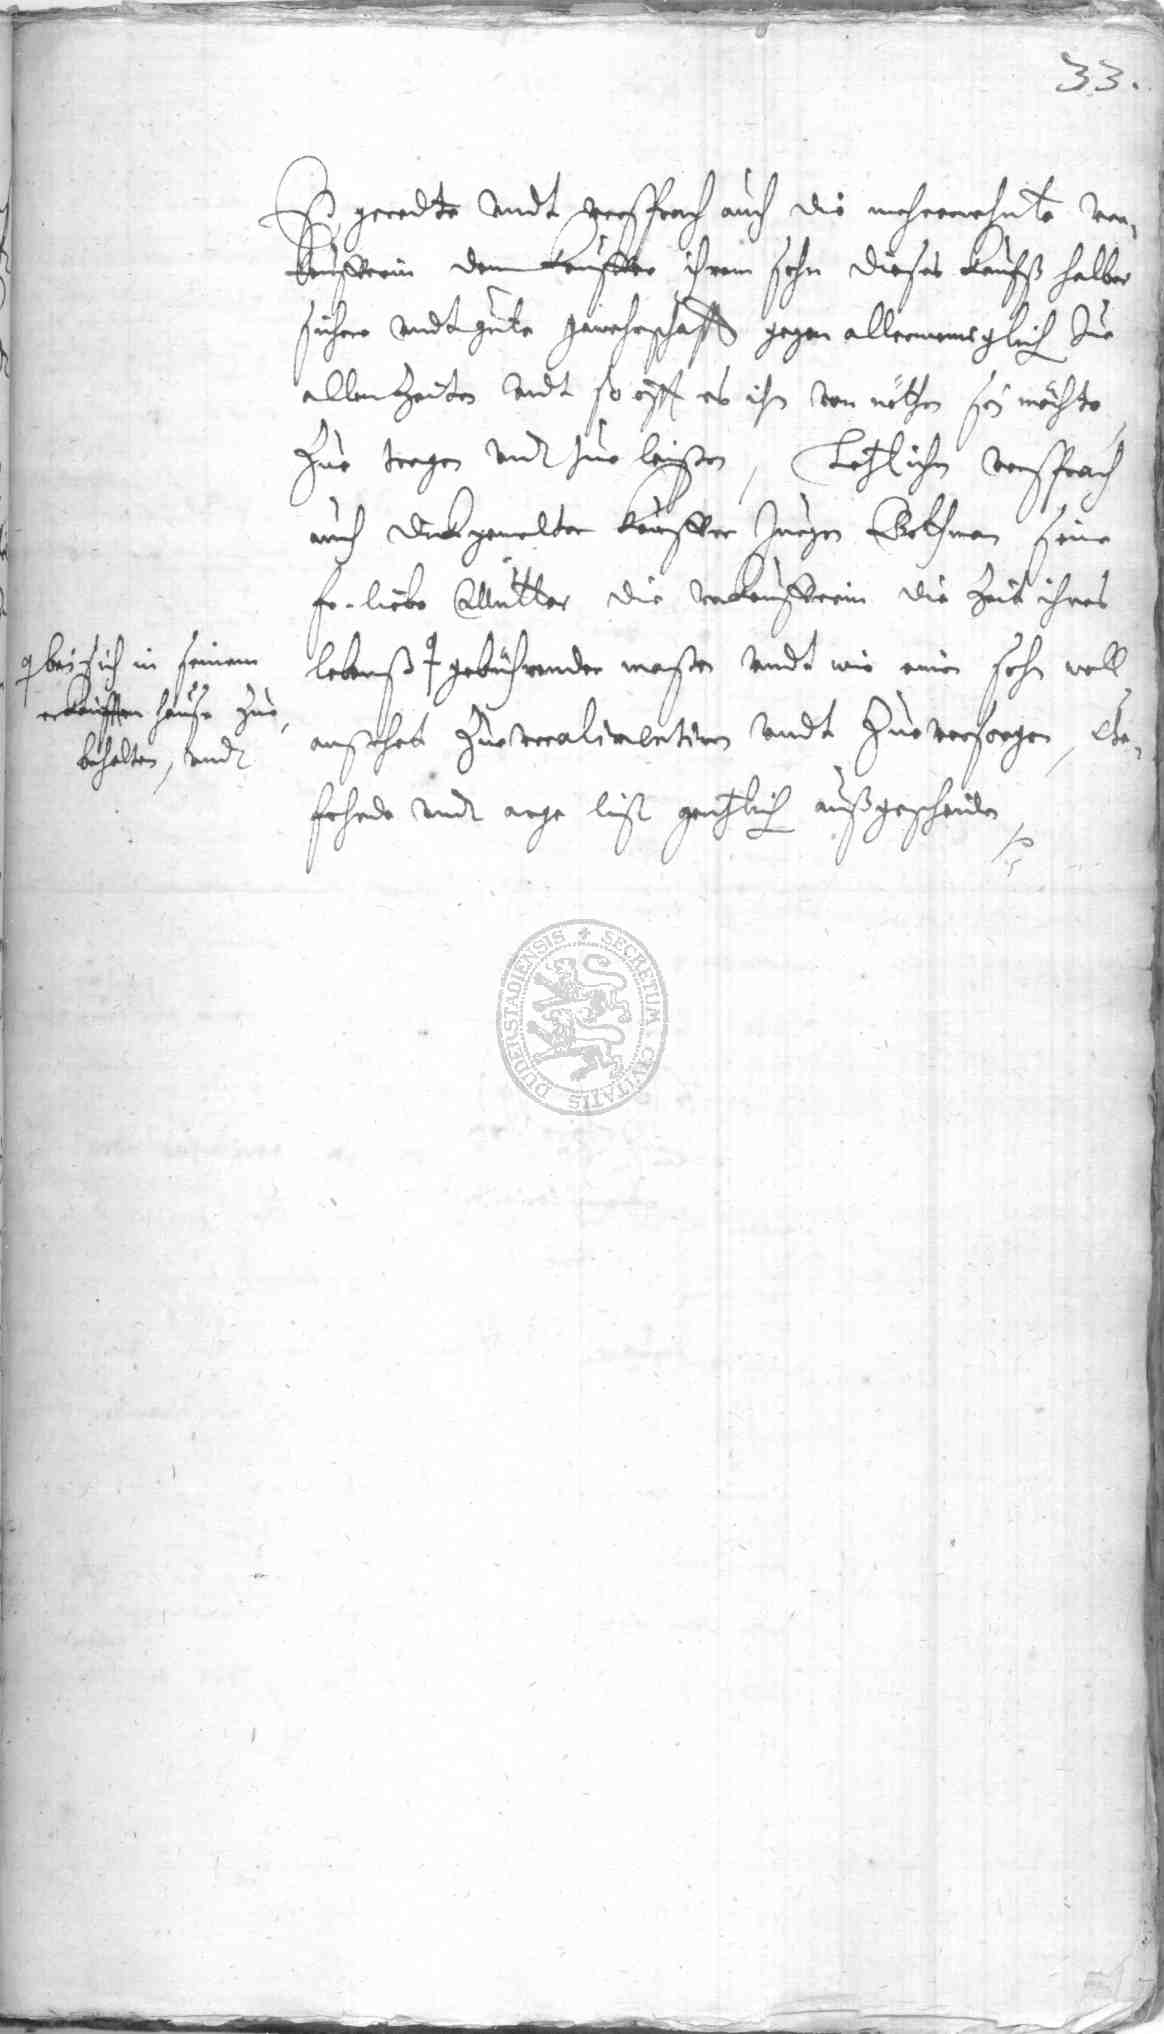 33.
So geredte undt versprach auch die mehrernehnte ver-
keufferin dem keuffer ihrem sohn dieses kaufß halber
sichere undt gute gewehrschafft gegen allermenniglich zue
allen Zeiten undt so offt es ihm von nöthen sein möchte
Zue tragen und zue leisten, Letzlichen versprach
auch dickgemelter keuffer Jurgen Bothman seine
liebe Mutter die verkeufferin die Zeit ihres
lebenß gebührender maßen undt wie einen sohn woll
anstehet Zue alimentiren undt Zue versorgen,
fehede und arge list gentzlich außgescheiden
bei sich in seinem
erkaufften hause zue
behalten, und
SECRETUM CIVITATIS DUDERSTADIENSIS